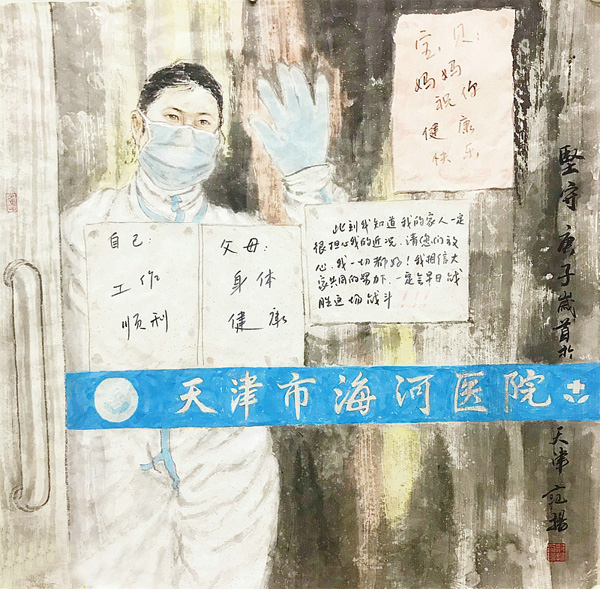 宝贝:
妈妈
祝你
健康
快乐
自己:
工作
顺利
父母:
身体
健康
此刻我知道我的家人一定
很担心我的近况,请您们放
心,我一切都好!我相信大
家共同的努力,一定会早日战
胜这场战斗!!!
天津市海河医院
堅守 庚子歲首於天津 范揚